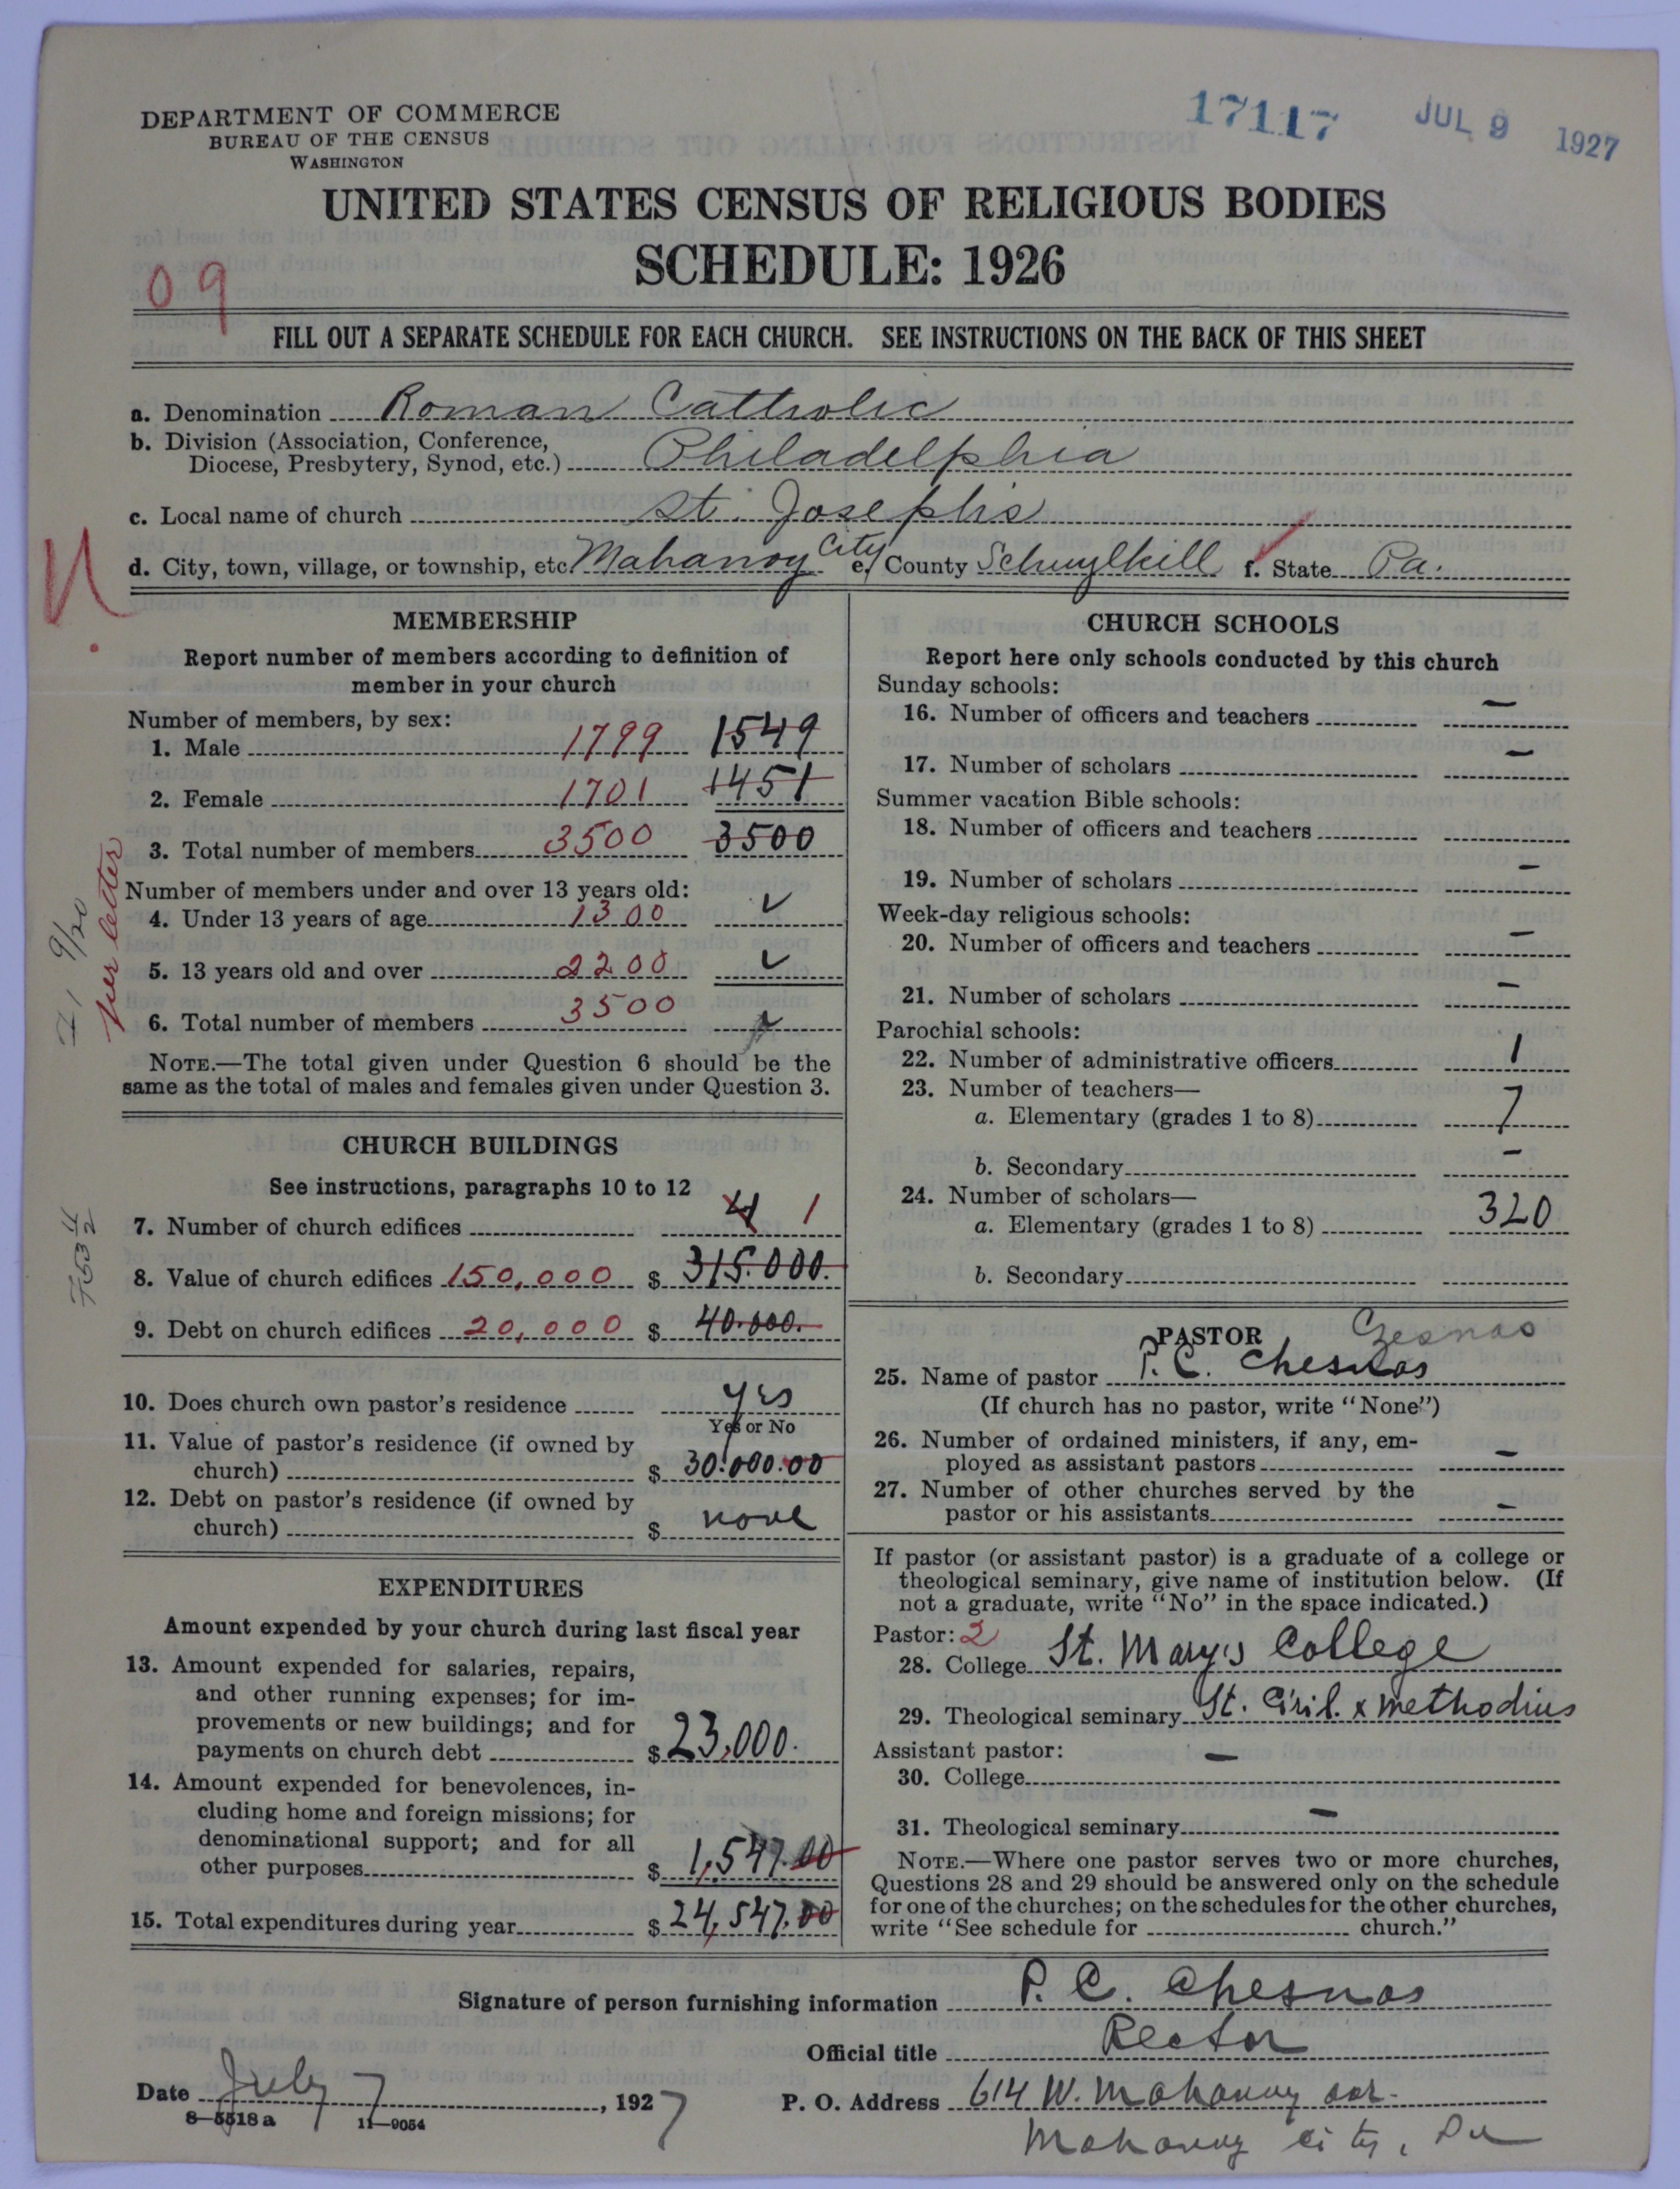 17117 JUL 9 1927
DEPARTMENT OF COMMERCE
BUREAU OF THE CENSUS
WASHINGTON
UNITED STATES CENSUS OF RELIGIOUS BODIES
SCHEDULE: 1926
09
FILL OUT A SEPARATE SCHEDULE FOR EACH CHURCH. SEE INSTRUCTIONS ON THE BACK OF THIS SHEET
a. Denomination Roman Catholic
b. Division (Association, Conference,
Diocese, Presbytery, Synod, etc.) Philadelphia
c. Local name of church St. Joseph's
d. City, town, village, or township, etc. Mahanoy City e. County Schuylkill f. State Pa.
N
MEMBERSHIP
Report number of members according to definition of
member in your church
Number of members, by sex:
1. Male 1799 1549
2. Female 1701 1451
3. Total number of members 3500 3500
Number of members under and over 13 years old:
4. Under 13 years of age 1300 ✓
5. 13 years old and over 2200 ✓
6. Total number of members 3500
9/20
per letter
NOTE.—The total given under Question 6 should be the
same as the total of males and females given under Question 3.
CHURCH BUILDINGS
See instructions, paragraphs 10 to 12
7. Number of church edifices 4 1
8. Value of church edifices 150,000 $ 315.000.
9. Debt on church edifices 20,000 $ 40.000.
10. Does church own pastor's residence yes
Yes or No
11. Value of pastor's residence (if owned by
church) $ 30.000.00
12. Debt on pastor's residence (if owned by
church) $ none
EXPENDITURES
Amount expended by your church during last fiscal year
13. Amount expended for salaries, repairs,
and other running expenses; for im-
provements or new buildings; and for
payments on church debt $ 23,000.
14. Amount expended for benevolences, in-
cluding home and foreign missions; for
denominational support; and for all
other purposes $ 1,547.00
15. Total expenditures during year $ 24,547.00
CHURCH SCHOOLS
Report here only schools conducted by this church
Sunday schools:
16. Number of officers and teachers —
17. Number of scholars —
Summer vacation Bible schools:
18. Number of officers and teachers —
19. Number of scholars —
Week-day religious schools:
20. Number of officers and teachers —
21. Number of scholars —
Parochial schools:
22. Number of administrative officers 1
23. Number of teachers—
a. Elementary (grades 1 to 8) 7
b. Secondary —
24. Number of scholars—
a. Elementary (grades 1 to 8) 320
b. Secondary
PASTOR Czesnas
25. Name of pastor P. C. Chesnas
(If church has no pastor, write "None")
26. Number of ordained ministers, if any, em-
ployed as assistant pastors —
27. Number of other churches served by the
pastor or his assistants —
If pastor (or assistant pastor) is a graduate of a college or
theological seminary, give name of institution below. (If
not a graduate, write "No" in the space indicated.)
Pastor: 2
28. College St. Mary's College
29. Theological seminary St. Ciril. x Methodius
Assistant pastor:
30. College —
31. Theological seminary —
NOTE.—Where one pastor serves two or more churches,
Questions 28 and 29 should be answered only on the schedule
for one of the churches; on the schedules for the other churches,
write "See schedule for church."
Signature of person furnishing information P. C. Chesnas
Official title Rector
Date July 7, 1927 P. O. Address 614 W. Mahanoy ave.
8—5518 a 11—9054
Mahanoy City, Pa